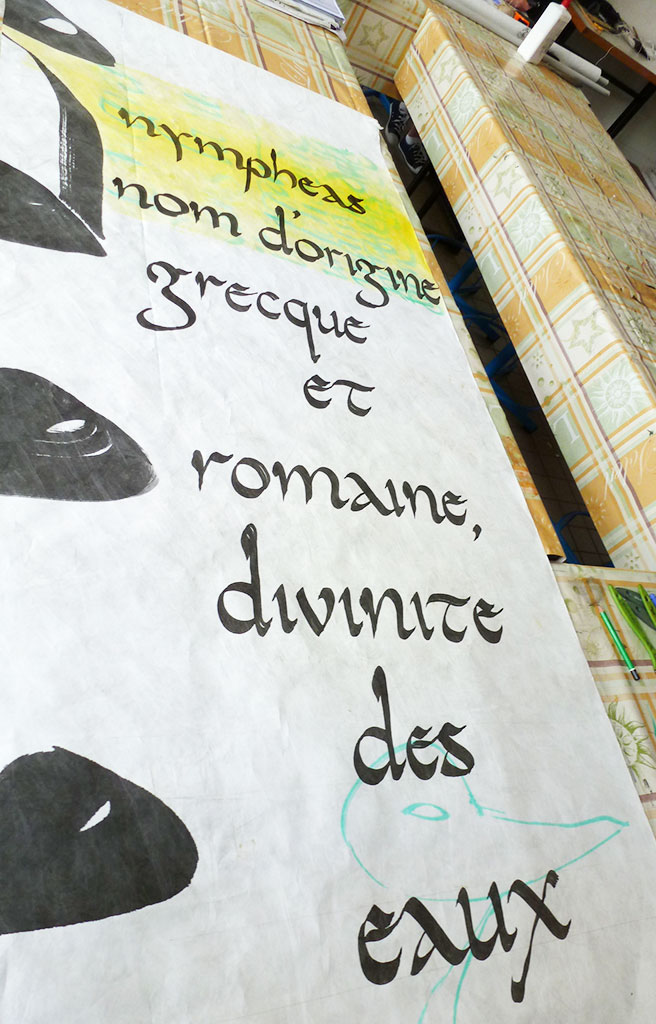 nympheas
nom d'origine
grecque
et
romaine,
divinite
des
eaux